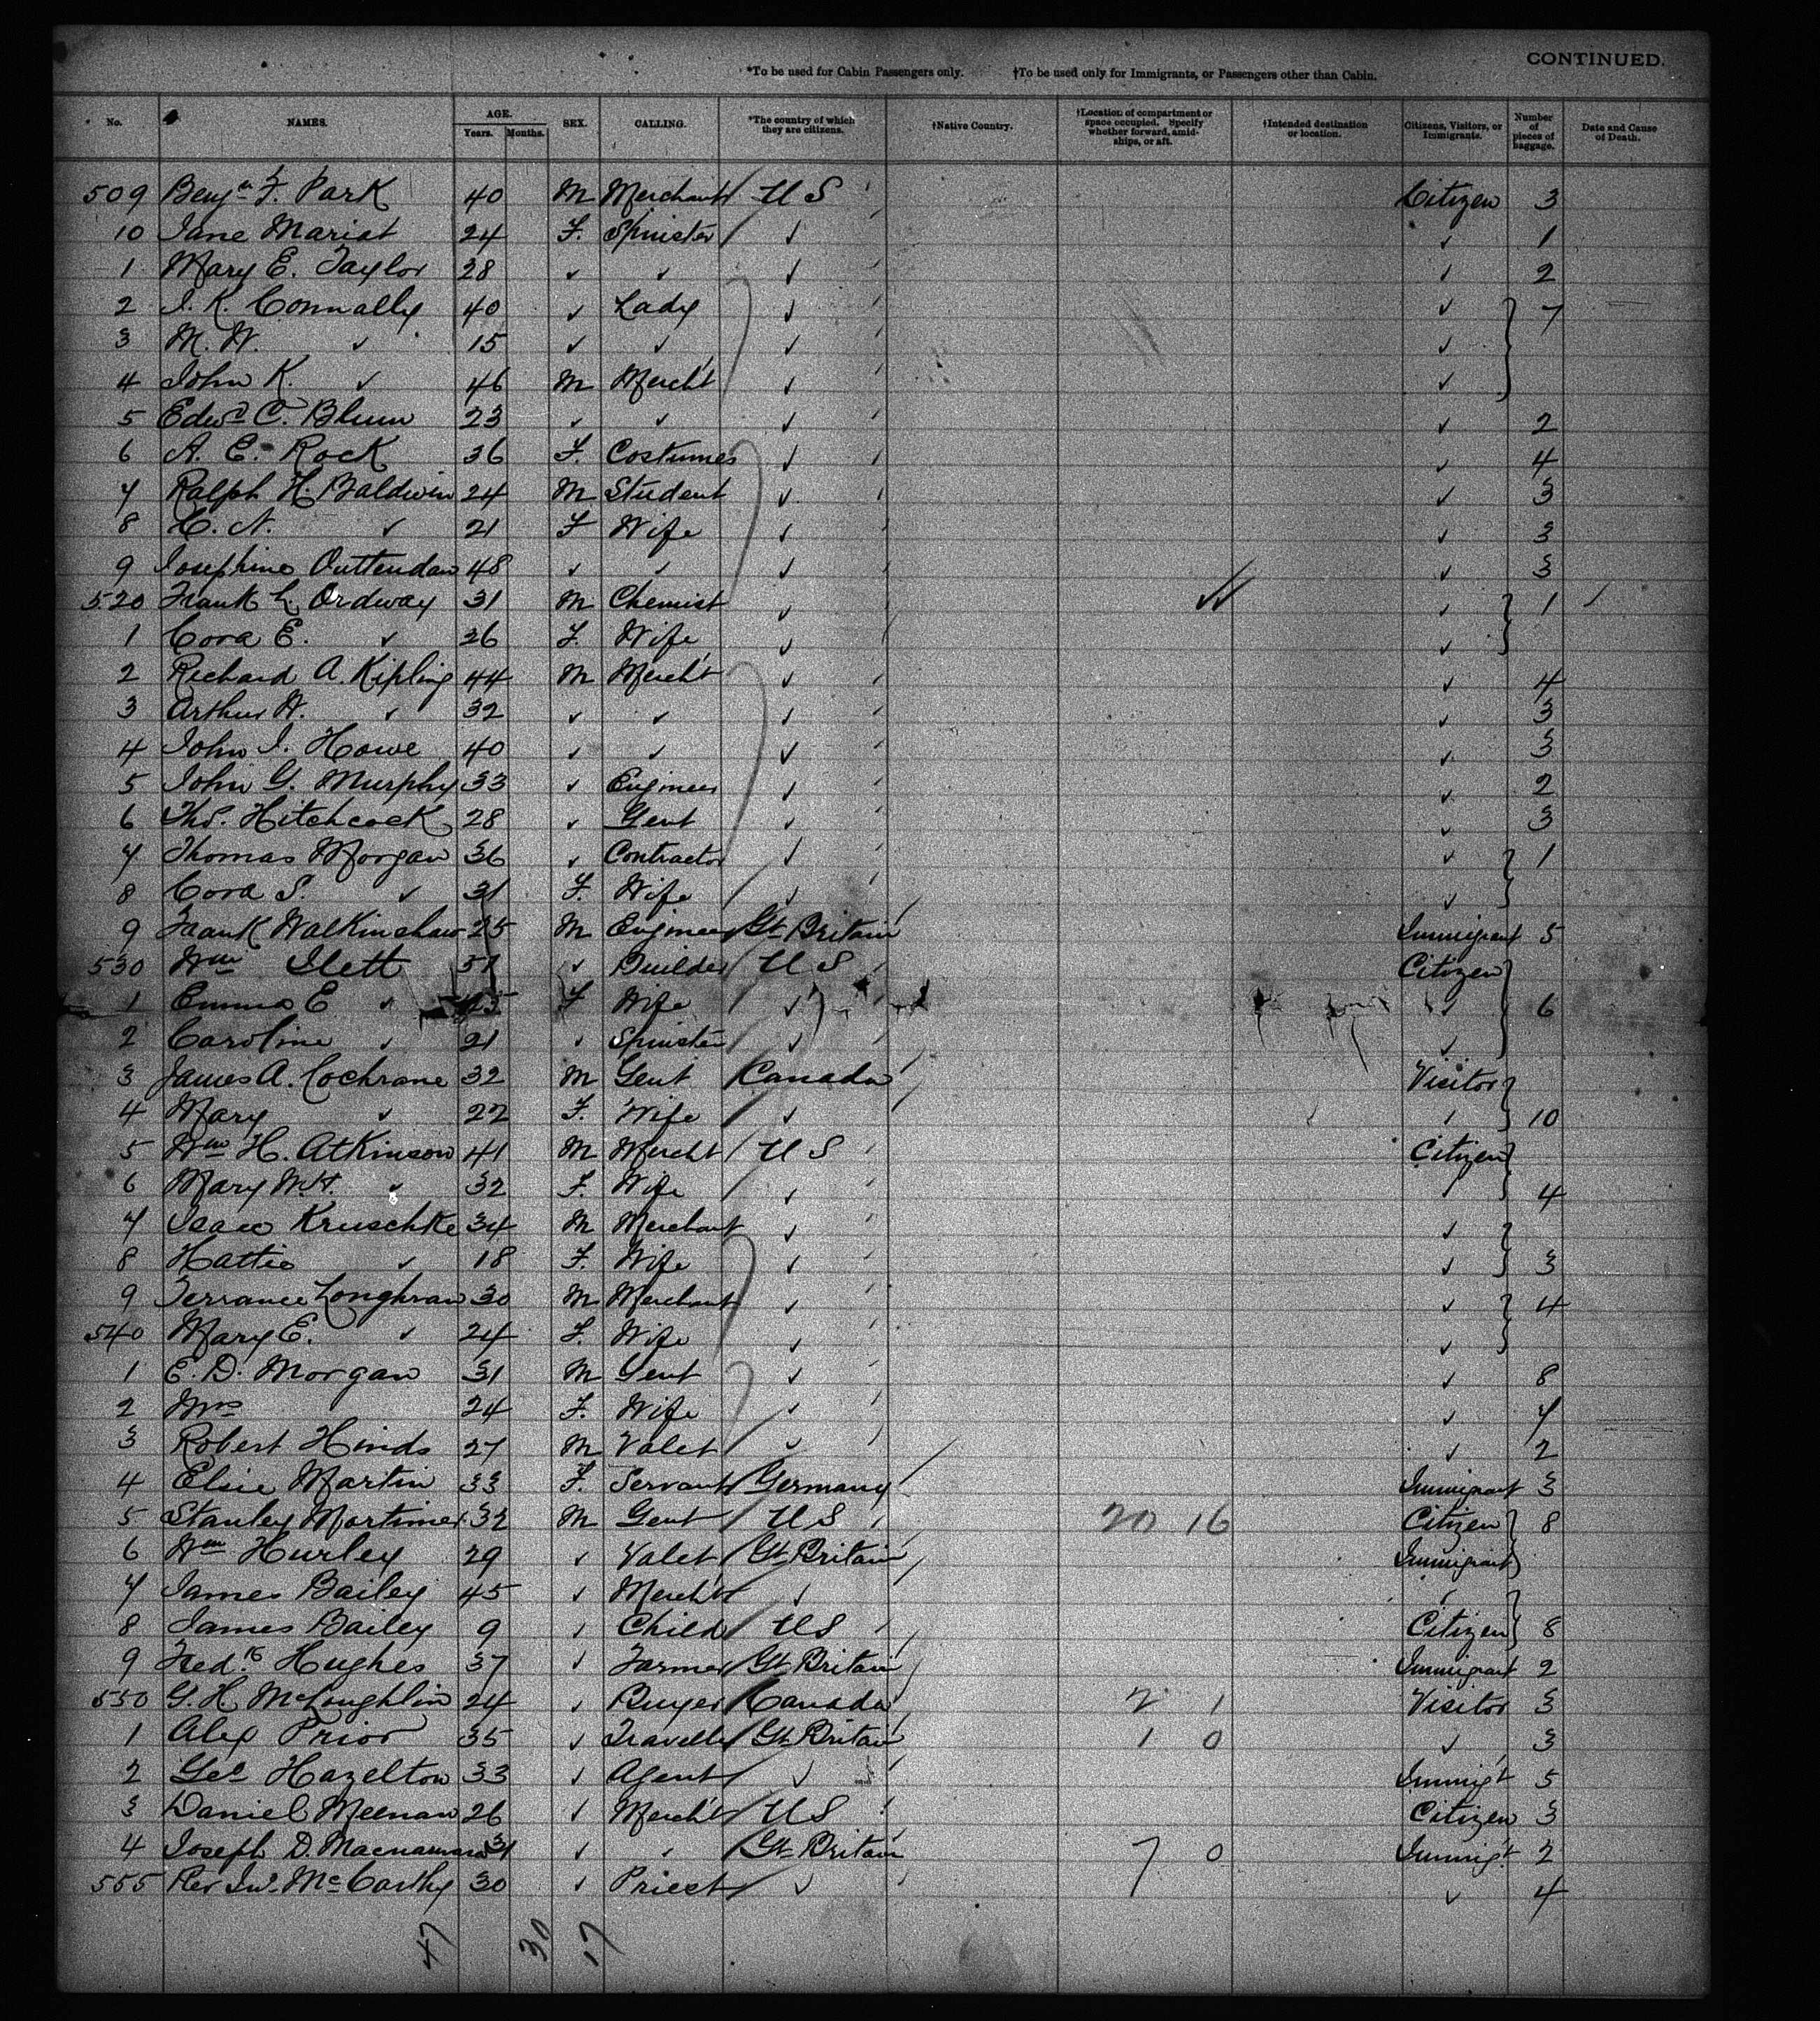 CONTINUED.
*To be used for Cabin Passengers only. †To be used only for Immigrants, or Passengers other than Cabin.
No. NAMES. AGE. Years. Months. SEX. CALLING. *The country of which they are citizens. †Native Country. †Location of compartment or space occupied. Specify whether forward, amidships, or aft. †Intended destination or location. Citizens, Visitors, or Immigrants. Number of pieces of baggage. Date and Cause of Death.
509 Benjn F. Park 40 M Merchant U S Citizen 3
10 Jane Mariat 24 F. Spinster ✓ ✓ 1
1 Mary E. Taylor 28 ✓ ✓ ✓ ✓ 2
2 J. K. Connally 40 ✓ Lady ✓ ✓ 7
3 M. W. ✓ 15 ✓ ✓ ✓ ✓
4 John K. ✓ 46 M Mercht ✓ ✓
5 Edwd C. Blum 23 ✓ ✓ ✓ ✓ 2
6 A. E. Rock 36 F. Costumes ✓ ✓ 4
7 Ralph H. Baldwin 24 M Student ✓ ✓ 3
8 C. N. ✓ 21 F Wife ✓ ✓ 3
9 Josephine 48 ✓ ✓ ✓ ✓ 3
520 Frank L. Ordway 31 M Chemist ✓ ✓ 1
1 Cora E. ✓ 26 F. Wife ✓ ✓
2 Richard A. Kipling 44 M Mercht ✓ ✓ 4
3 Arthur W. ✓ 32 ✓ ✓ ✓ ✓ 3
4 John J. Howe 40 ✓ ✓ ✓ ✓ 3
5 John G. Murphy 33 ✓ Engineer ✓ ✓ 2
6 Thos. Hitchcock 28 ✓ Gent ✓ ✓ 3
7 Thomas Morgan 36 ✓ Contractor ✓ ✓ 1
8 Cora S. ✓ 31 F. Wife ✓ ✓
9 Frank Walkinshaw 25 M Engineer Gt Britain Immigrant 5
530 Wm Ilett 57 ✓ Builder U S Citizen
1 Emma E ✓ 45 F Wife ✓ ✓ 6
2 Caroline ✓ 21 ✓ Spinster ✓ ✓
3 James A. Cochrane 32 M Gent Canada Visitor
4 Mary ✓ 22 F. Wife ✓ ✓ 10
5 Wm H. Atkinson 41 M Mercht U S Citizen
6 Mary W.H. ✓ 32 F. Wife ✓ ✓ 4
7 Isaac Kruschke 34 M Merchant ✓ ✓
8 Hattie ✓ 18 F. Wife ✓ ✓ 3
9 Terrance Loughran 30 M Merchant ✓ ✓ 4
540 Mary E. ✓ 24 F. Wife ✓ ✓
1 E. D. Morgan 31 M Gent ✓ ✓ 8
2 Mrs 24 F. Wife ✓ ✓ 7
3 Robert Hinds 27 M Valet ✓ ✓ 2
4 Elsie Martin 33 F. Servant Germany Immigrant 3
5 Stanley Mortimer 32 M Gent U S 20 16 Citizen 8
6 Wm Hurley 29 ✓ Valet Gt Britain Immigrant
7 James Bailey 45 ✓ Mercht ✓ ✓
8 James Bailey 9 ✓ Child U S Citizen 8
9 Fredk Hughes 37 ✓ Farmer Gt Britain Immigrant 2
550 G. H. McLoughlin 24 ✓ Buyer Canada 2 1 Visitor 3
1 Alex Prior 35 ✓ Traveller Gt Britain 1 0 ✓ 3
2 Geo Hazelton 33 ✓ Agent ✓ Immigt 5
3 Daniel Meenan 26 ✓ Mercht U S Citizen 3
4 Joseph D. Macnamara 31 ✓ ✓ Gt Britain 7 0 Immigt 2
555 Rev Jno. McCarthy 30 ✓ Priest ✓ ✓ 4
47 30 17